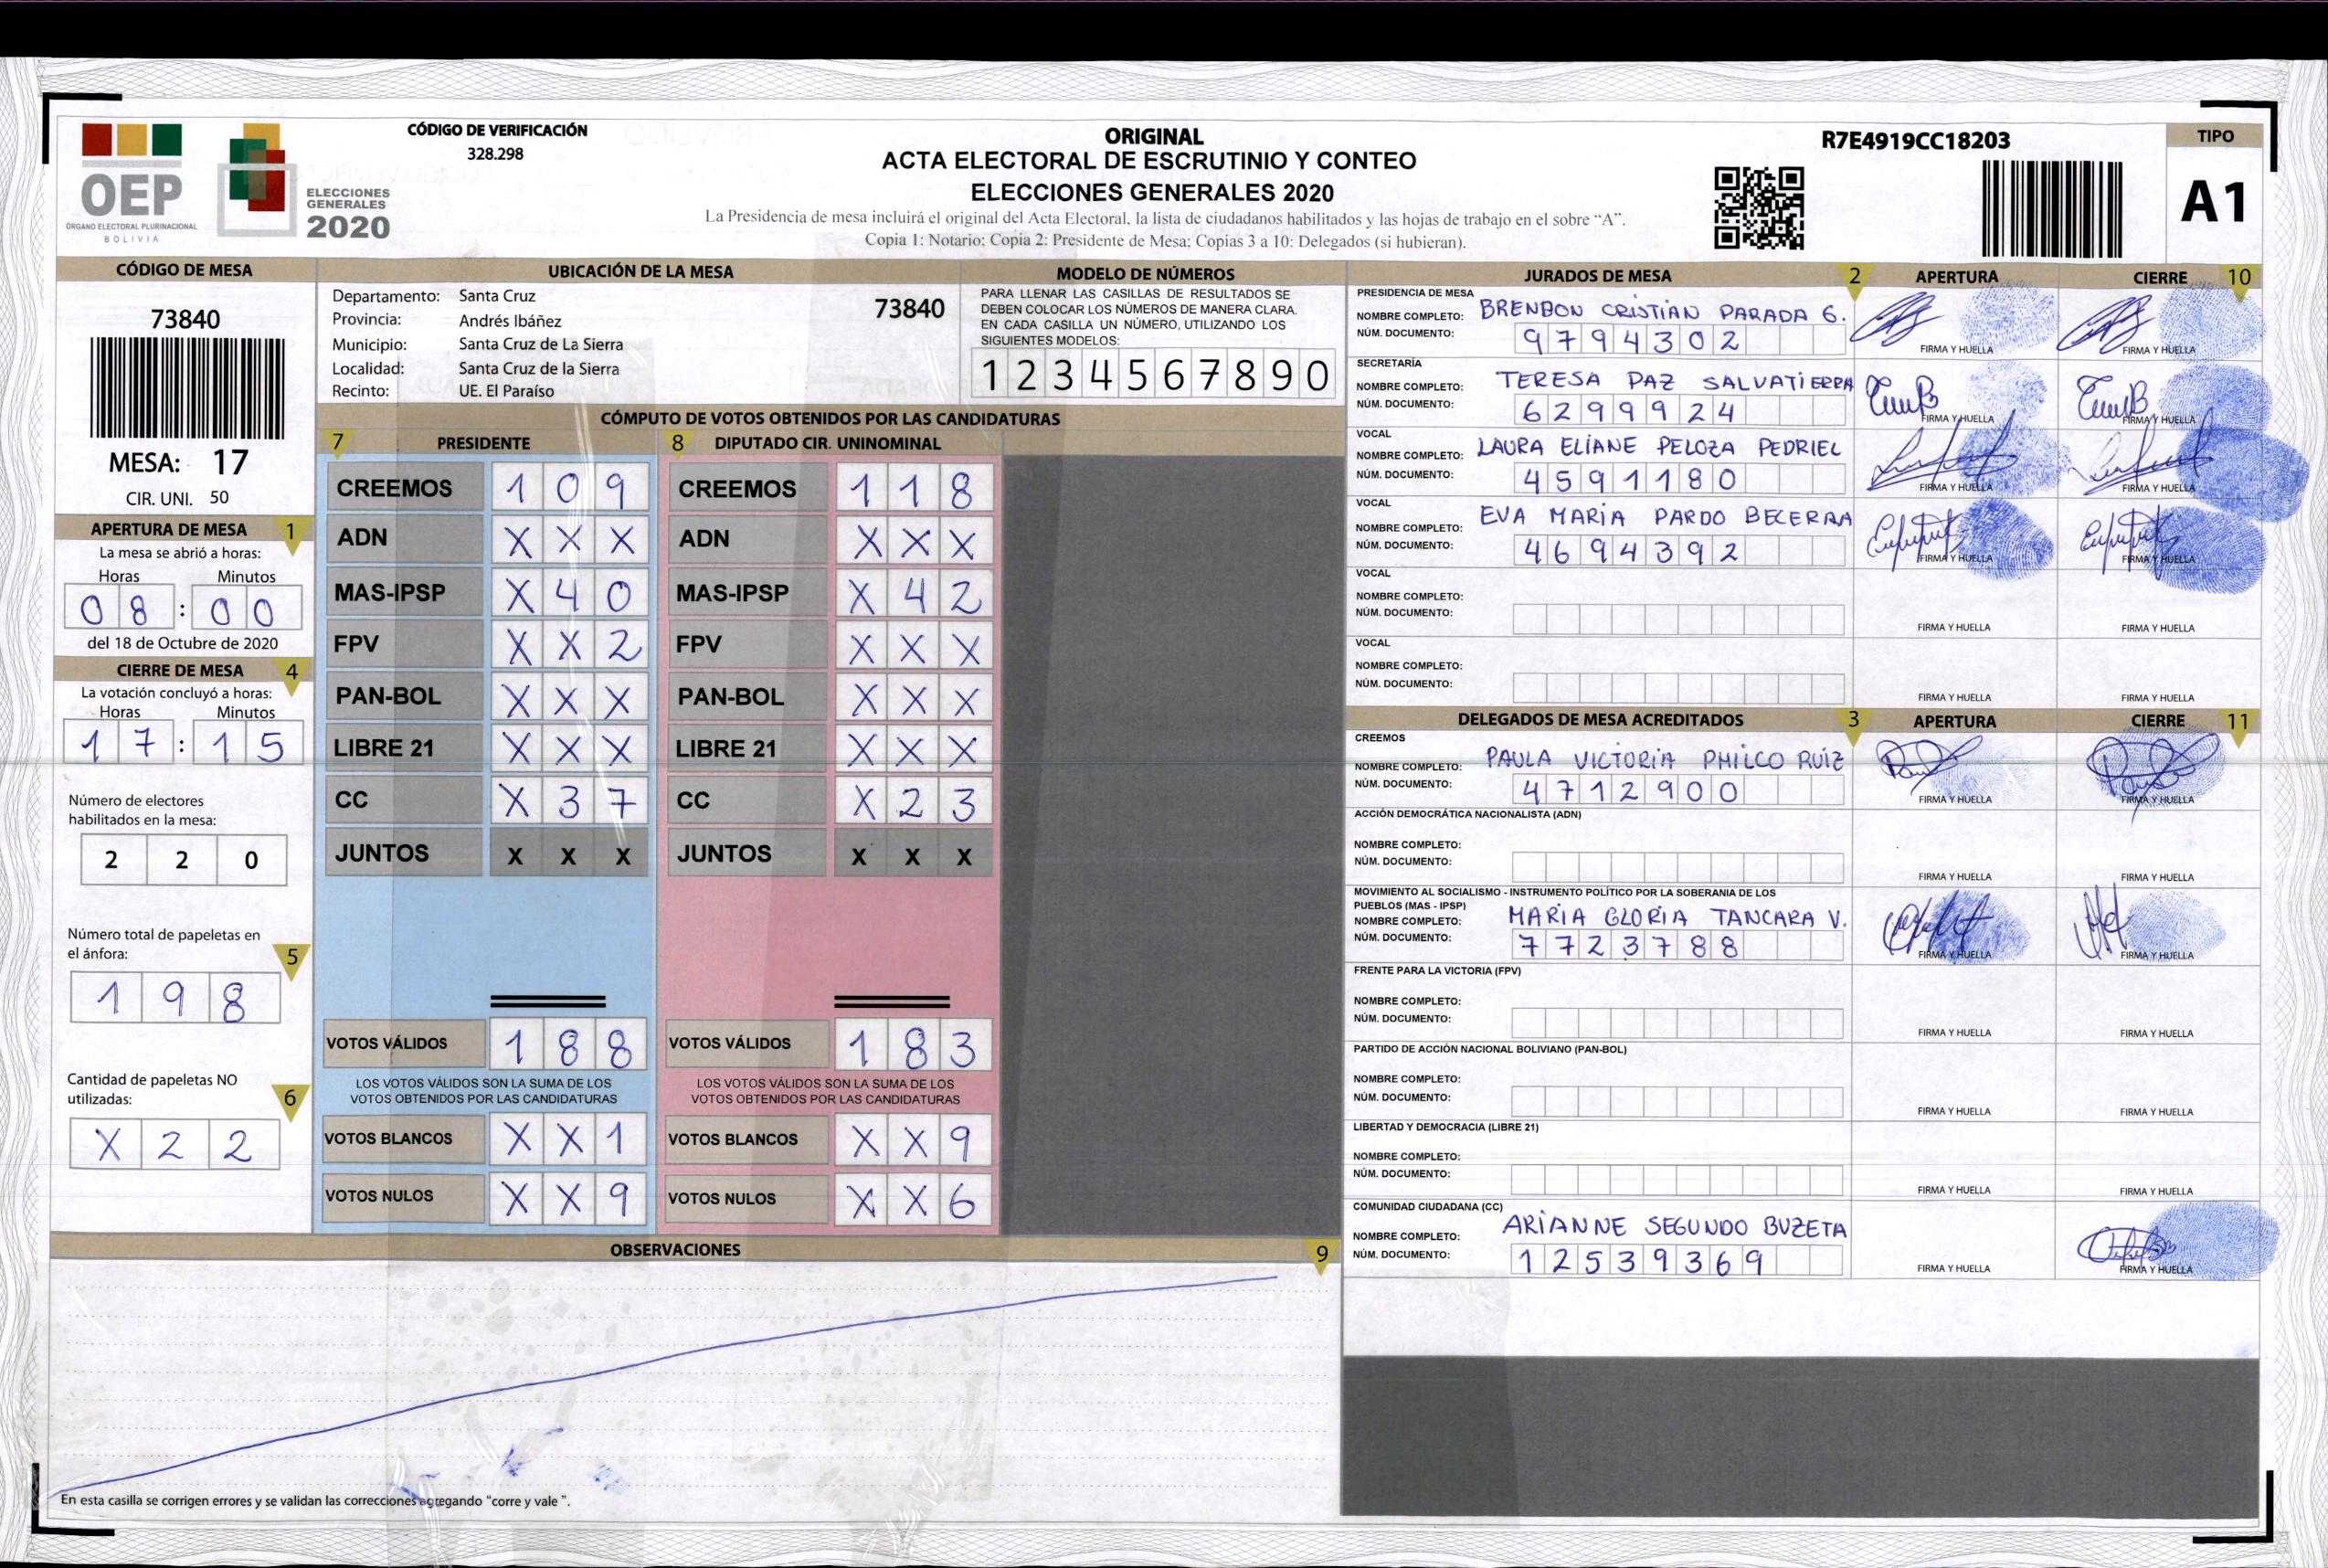 OEP
ÓRGANO ELECTORAL PLURINACIONAL
BOLIVIA
ELECCIONES
GENERALES
2020
CÓDIGO DE VERIFICACIÓN
328.298
ORIGINAL
ACTA ELECTORAL DE ESCRUTINIO Y CONTEO
ELECCIONES GENERALES 2020
La Presidencia de mesa incluirá el original del Acta Electoral, la lista de ciudadanos habilitados y las hojas de trabajo en el sobre “A”.
Copia 1: Notario; Copia 2: Presidente de Mesa; Copias 3 a 10: Delegados (si hubieran).
R7E4919CC18203
TIPO
A1
CÓDIGO DE MESA
73840
MESA: 17
CIR. UNI. 50
APERTURA DE MESA 1
La mesa se abrió a horas:
Horas Minutos
08 : 00
del 18 de Octubre de 2020
CIERRE DE MESA 4
La votación concluyó a horas:
Horas Minutos
17 : 15
Número de electores
habilitados en la mesa:
2 2 0
Número total de papeletas en
el ánfora: 5
1 9 8
Cantidad de papeletas NO
utilizadas: 6
X 2 2
UBICACIÓN DE LA MESA
Departamento: Santa Cruz 73840
Provincia: Andrés Ibáñez
Municipio: Santa Cruz de La Sierra
Localidad: Santa Cruz de la Sierra
Recinto: UE. El Paraíso
MODELO DE NÚMEROS
PARA LLENAR LAS CASILLAS DE RESULTADOS SE
DEBEN COLOCAR LOS NÚMEROS DE MANERA CLARA.
EN CADA CASILLA UN NÚMERO, UTILIZANDO LOS
SIGUIENTES MODELOS:
1 2 3 4 5 6 7 8 9 0
CÓMPUTO DE VOTOS OBTENIDOS POR LAS CANDIDATURAS
7 PRESIDENTE 8 DIPUTADO CIR. UNINOMINAL
CREEMOS 1 0 9 CREEMOS 1 1 8
ADN X X X ADN X X X
MAS-IPSP X 4 0 MAS-IPSP X 4 2
FPV X X 2 FPV X X X
PAN-BOL X X X PAN-BOL X X X
LIBRE 21 X X X LIBRE 21 X X X
CC X 3 7 CC X 2 3
JUNTOS X X X JUNTOS X X X
VOTOS VÁLIDOS 1 8 8 VOTOS VÁLIDOS 1 8 3
LOS VOTOS VÁLIDOS SON LA SUMA DE LOS LOS VOTOS VÁLIDOS SON LA SUMA DE LOS
VOTOS OBTENIDOS POR LAS CANDIDATURAS VOTOS OBTENIDOS POR LAS CANDIDATURAS
VOTOS BLANCOS X X 1 VOTOS BLANCOS X X 9
VOTOS NULOS X X 9 VOTOS NULOS X X 6
OBSERVACIONES 9
En esta casilla se corrigen errores y se validan las correcciones agregando “corre y vale ”.
JURADOS DE MESA 2 APERTURA CIERRE 10
PRESIDENCIA DE MESA
NOMBRE COMPLETO: BRENDON CRISTIAN PARADA G.
NÚM. DOCUMENTO: 9794302 FIRMA Y HUELLA FIRMA Y HUELLA
SECRETARÍA
NOMBRE COMPLETO: TERESA PAZ SALVATIERRA
NÚM. DOCUMENTO: 6299924 FIRMA Y HUELLA FIRMA Y HUELLA
VOCAL
NOMBRE COMPLETO: LAURA ELIANE PELOZA PEDRIEL
NÚM. DOCUMENTO: 4591180 FIRMA Y HUELLA FIRMA Y HUELLA
VOCAL
NOMBRE COMPLETO: EVA MARIA PARDO BECERRA
NÚM. DOCUMENTO: 4694392 FIRMA Y HUELLA FIRMA Y HUELLA
VOCAL
NOMBRE COMPLETO:
NÚM. DOCUMENTO: FIRMA Y HUELLA FIRMA Y HUELLA
VOCAL
NOMBRE COMPLETO:
NÚM. DOCUMENTO: FIRMA Y HUELLA FIRMA Y HUELLA
DELEGADOS DE MESA ACREDITADOS 3 APERTURA CIERRE 11
CREEMOS
NOMBRE COMPLETO: PAULA VICTORIA PHILCO RUIZ
NÚM. DOCUMENTO: 4712900 FIRMA Y HUELLA FIRMA Y HUELLA
ACCIÓN DEMOCRÁTICA NACIONALISTA (ADN)
NOMBRE COMPLETO:
NÚM. DOCUMENTO: FIRMA Y HUELLA FIRMA Y HUELLA
MOVIMIENTO AL SOCIALISMO - INSTRUMENTO POLÍTICO POR LA SOBERANIA DE LOS
PUEBLOS (MAS - IPSP)
NOMBRE COMPLETO: MARIA GLORIA TANCARA V.
NÚM. DOCUMENTO: 7723788 FIRMA Y HUELLA FIRMA Y HUELLA
FRENTE PARA LA VICTORIA (FPV)
NOMBRE COMPLETO:
NÚM. DOCUMENTO: FIRMA Y HUELLA FIRMA Y HUELLA
PARTIDO DE ACCIÓN NACIONAL BOLIVIANO (PAN-BOL)
NOMBRE COMPLETO:
NÚM. DOCUMENTO: FIRMA Y HUELLA FIRMA Y HUELLA
LIBERTAD Y DEMOCRACIA (LIBRE 21)
NOMBRE COMPLETO:
NÚM. DOCUMENTO: FIRMA Y HUELLA FIRMA Y HUELLA
COMUNIDAD CIUDADANA (CC)
NOMBRE COMPLETO: ARIANNE SEGUNDO BUZETA
NÚM. DOCUMENTO: 12539369 FIRMA Y HUELLA FIRMA Y HUELLA